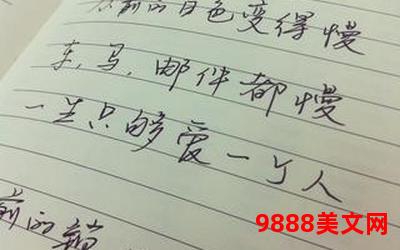 从前的日色变得慢
车,马,邮件都慢
一生只够爱一个人
前的锁
9888美文网